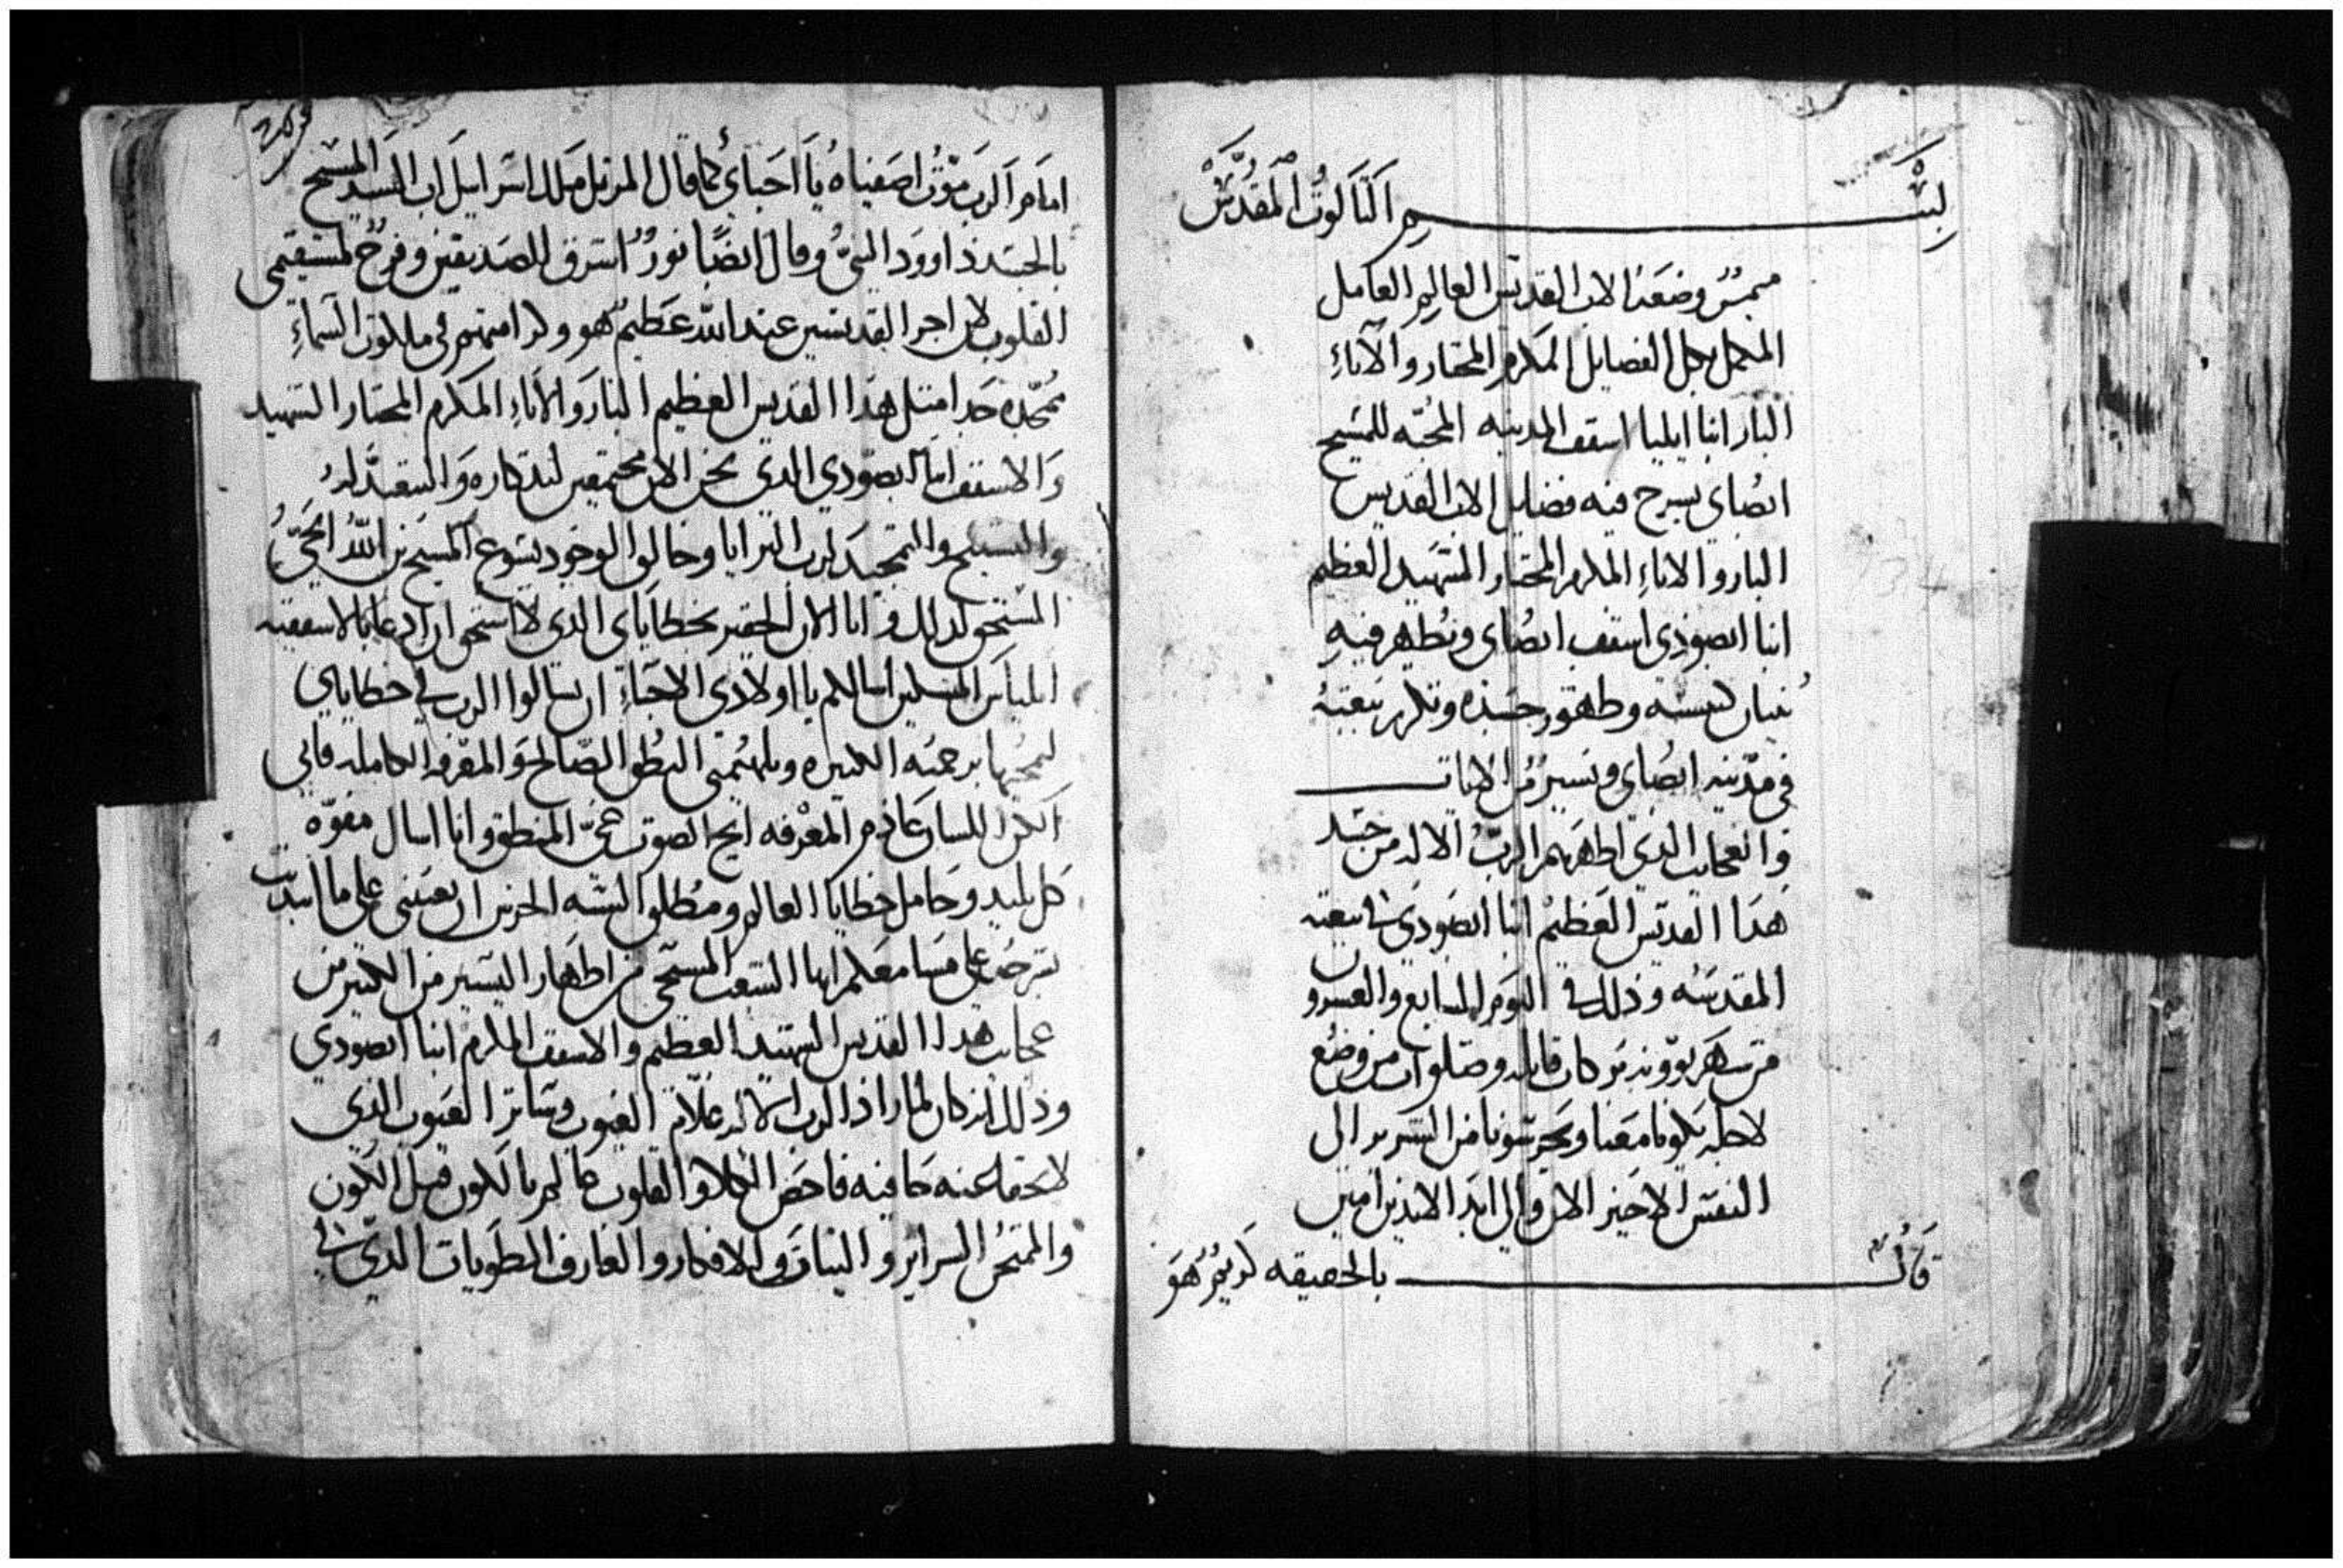 بسم الثالوث المقدس
ميمر وضعه الاب القديس العالم العامل
المكمل بكل الفضايل المكرم المختار والاناء
البار انبا ايليا اسقف المدينه المحبه للمسيح
ابصاي يسرح فيه فضايل الاب القديس
البار والاناء المكرم المختار الشهيد العظيم
انبا ابصودي اسقف ابصاي ونظهر فيه
بنيان كنيسته وظهور جسده وتكريز بيعته
في مدينه ابصاي ويسير من الايات
والعجايب الذي اظهرهم الرب الاله من جسد
هذا القديس العظيم انبا ابصودي في بيعته
المقدسه وذلك في اليوم السابع والعشرون
من شهر بوونه بركات قايله وصلوات من وضع
لاجله يكونا معنا ويحرسونا من الشرير الى
النفس الاخير الان والى ابد الابدين امين
قال بالحقيقه كريم هو
امام الرب موت اصفياه يا احباي كما قال المرتل ملك اسراييل اب السيد المسيح
بالجسد داوود النبي وقال ايضا نور اشرق للصديقين وفرح لمستقيمي
القلوب لان اجر القديسين عند الله عظيم هو وكرامتهم في ملكوت السماء
ممجده جدا مثل هذا القديس العظيم البار والاناء المكرم المختار الشهيد
والاسقف انبا ابصودي الذي نحن الان مجتمعين لتذكاره والتعيد له
والتسبيح والتمجيد لرب البرايا وخالق الوجود يسوع المسيح بن الله الحي
المستحق لذلك وانا الان الحقير بخطاياي الذي لا استحق ان ادعا بالاسقفيه
ايلياس المسكين اسالكم يا اولادي الاحباء ان تسالوا الرب في خطاياي
ليمحيها برحمته الكثيره ويلهمني النطق الصالح والمعرفه الكامله فاني
الكن اللسان عادم المعرفه ابح الصوت عي المنطق وانا اسال مفوه
كل بليد وحامل خطايا العالم ومطلق السنه الخرس ان يعينني على ما ابتديت
بشرحه على مسامعكم ايها الشعب المسيحي من اظهار اليسير من الكثير من
عجايب هذا القديس الشهيد العظيم والاسقف المكرم انبا ابصودي
وذلك انه كان لما اراد الرب الاله علام الغيوب وساتر العيوب الذي
لا تخفا عنه خافيه فاحص الكلا والقلوب عالم بالكون قبل الكون
والممتحن السراير والنيات والافكار والعارف الطويات الذي في